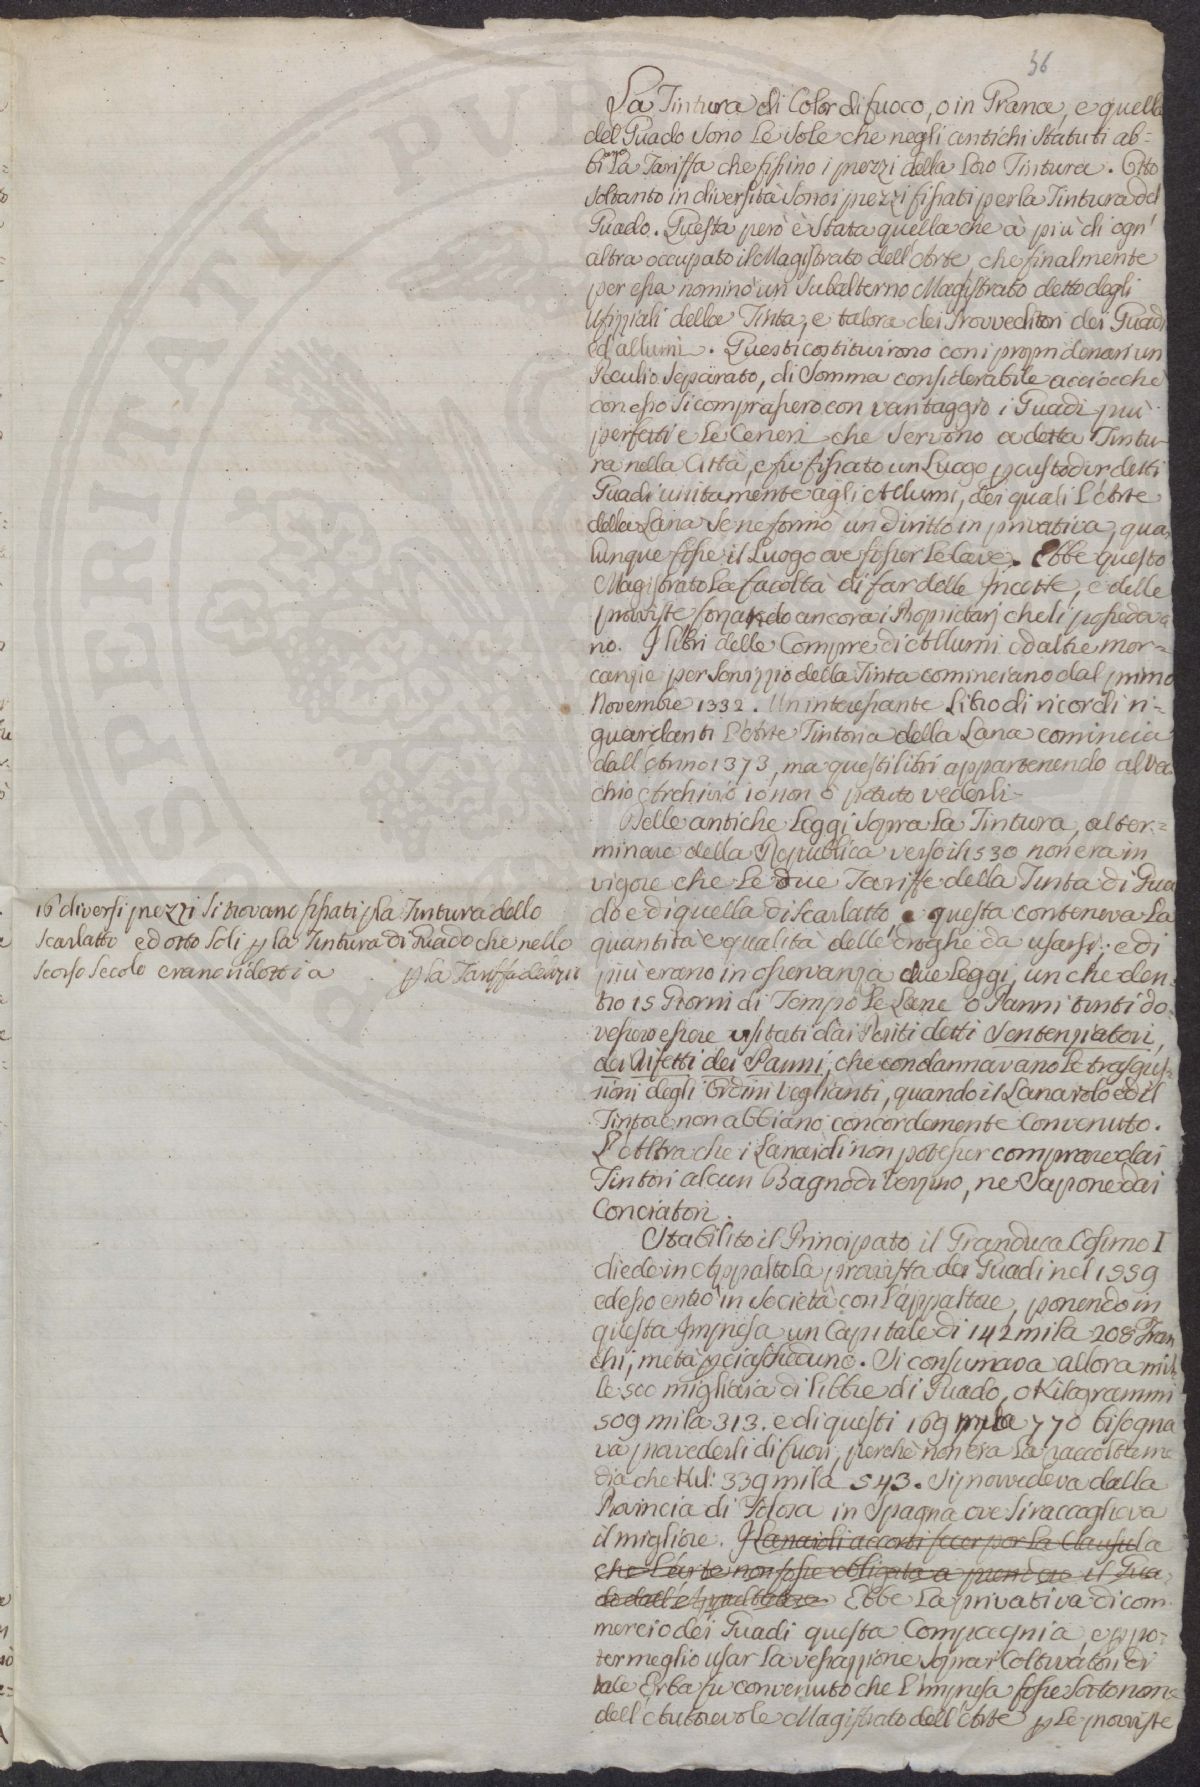 36
La Tintura di Color di fuoco, o in Grana, e quella
del Guado sono le sole che negli antichi Statuti ab-
biano la Tariffa che fissino i prezzi della loro Tintura. Otto
soltanto in diversità sono i prezzi fissati per la Tintura del
Guado. Questa però è stata quella che à più di ogn'
altra occupato il Magistrato dell'Arte, che finalmente
per essa nominò un subalterno Magistrato detto degli
Ufiziali della Tinta, e talora dei Provveditori dei Guadi
ed allumi. Questi costituirono con i propri denari un
Peculio separato, di somma considerabile acciocchè
con esso si comprassero con vantaggio i Guadi più
perfetti e le Ceneri che servono a detta Tintu-
ra nella Città, e fu fissato un Luogo p custodir detti
Guadi unitamente agli Allumi, dei quali l'Arte
della Lana se ne formò un diritto in privativa, qua
lunque fosse il Luogo ove fosser le Cave. Ebbe questo
Magistrato la facoltà di far delle Incette, e delle
provviste forzando ancora i Proprietarj che li possedeva
no. I libri delle Compre di Allumi ed altre mer=
canzie per servizio della Tinta cominciano dal primo
Novembre 1332. Un interessante Libro di ricordi ri-
guardanti l'Arte Tintoria della Lana comincia
dall'Anno 1373, ma questi libri appartenendo al vec
chio Archivio io non ò potuto vederli-
Delle antiche Leggi sopra la Tintura, al ter=
minare della Republica verso il 1530 non era in
vigore che le due Tariffe della Tinta di Gua
do e di quella di Scarlatto e questa conteneva la
quantità e qualità delle droghe da usarsi: e di
più erano in osservanza due Leggi, un che den-
tro 15 Giorni di Tempo le Lane o Panni tinti do-
vessero essere visitati dai Periti detti Sentenziatori,
dei difetti dei Panni, che condannavano le trasgres-
sioni degli Ordini Veglianti, quando il Lanaiolo ed il
Tintore non abbiano concordemente Convenuto.
L'Altra che i Lanaioli non potesser comprare dai
Tintori alcun Bagno di Verzino, ne Sapone dai
Conciatori.
Stabilito il Principato il Granduca Cosimo I
diede in Appalto la provvista dei Guadi nel 1559
ed esso entrò in società con l'appaltore, ponendo in
questa Impresa un Capitale di 142 mila 208 Fran
chi, metà p ciascheduno. Si consumava allora mil
le 500 migliaia di libbre di Guado, o Kilogrammi
509 mila 313. e di questi 169 mila 770 bisogna
va provvederli di fuori, perchè non era la raccolta me
dia che Kil: 339 mila 543. Si provvedeva dalla
Provincia di Tolosa in Spagna ove si raccoglieva
il migliore. I Lanaioli accorti fecer por la Clausula
che l'arte non fosse obligata a prendere il Gua
do dall'Appaltatore Ebbe la privativa di com
mercio dei Guadi questa Compagnia, e p po-
ter meglio usar la vessazione sopra i Coltivatori di
tale Erba fu convenuto che l'impresa fosse sotto nome
dell'Autorevole Magistrato dell'Arte p le provviste
16 diversi prezzi si trovano fissati p la Tintura dello
Scarlatto ed otto soli p la Tintura di Guado che nello
scorso secolo erano ridotti a p la Tariffa del